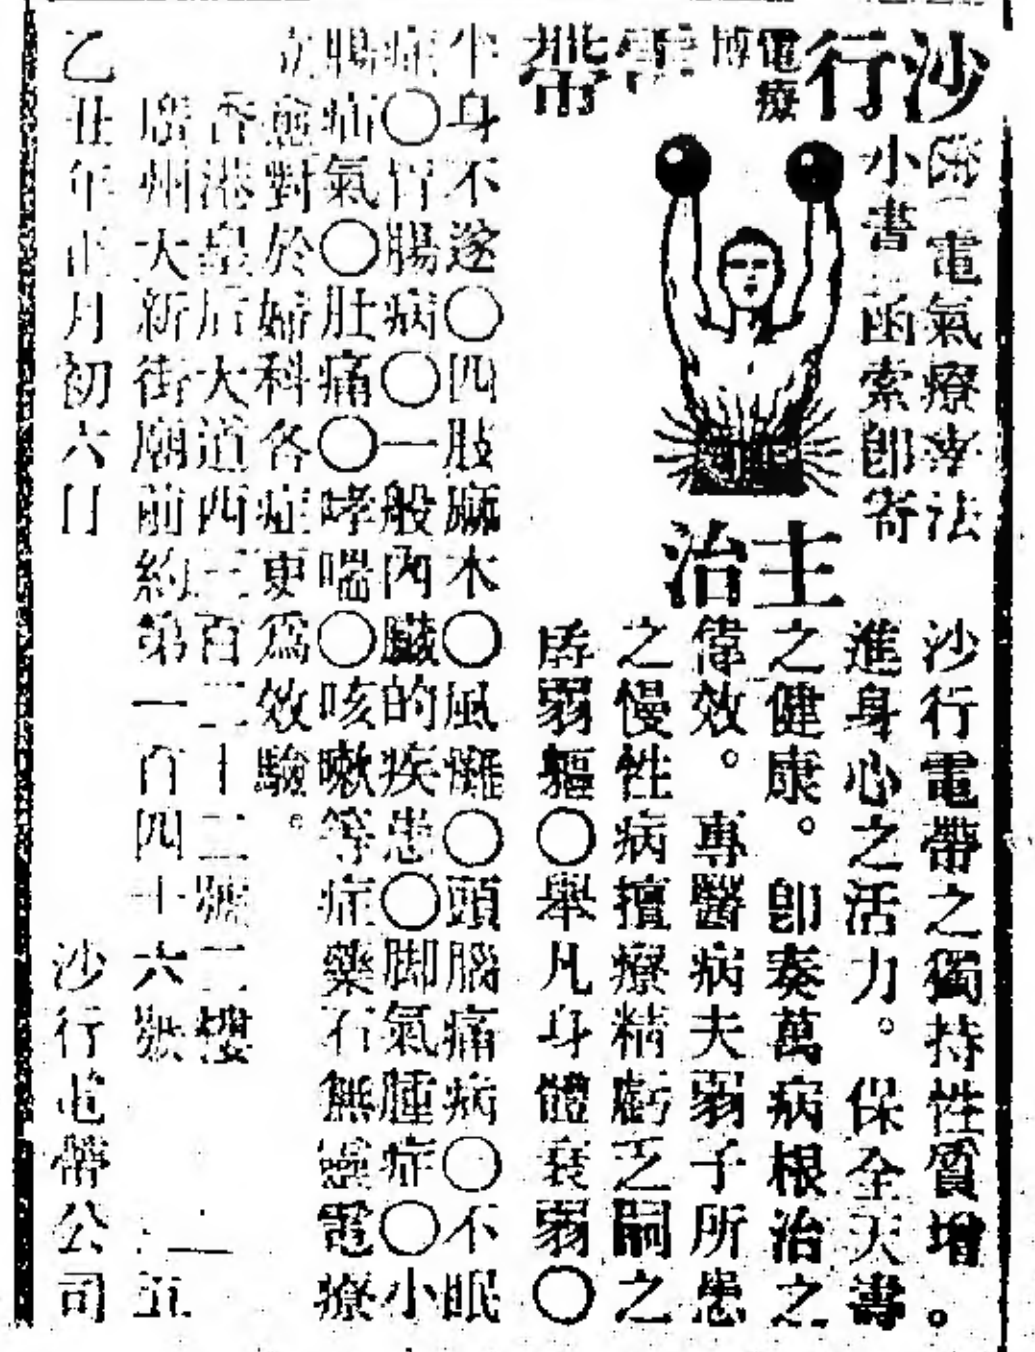 沙行
電療
博
電帶
電氣療法
小書函索即寄
主治
沙行電帶之獨特性質增。
進身心之活力。保全天壽
之健康。即奏萬病根治之
偉效。專醫病夫弱子所患
之慢性病擅療精虧乏嗣之
孱弱軀〇舉凡身體衰弱〇
半身不遂〇四肢麻木〇風癱〇頭腦痛病〇不眠
症〇胃腸病〇一般內臟的疾患〇脚氣腫症〇小
腸疝氣〇肚痛〇哮喘〇咳嗽等症藥石無靈電療
立愈對於婦科各症更為效驗。
香港皇后大道西三百二十二號二樓
廣州大新街廟前約第一百四十六號
乙丑年正月初六日
沙行電帶公司